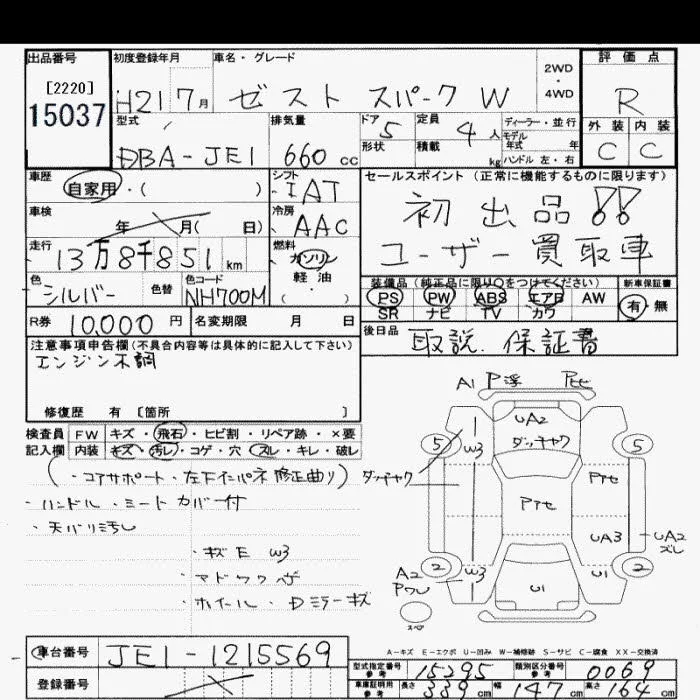 出品番号 初度登録年月 車名・グレード 2WD・4WD 評価点
[2220] 15037
H21 7月 ゼスト スパーク W R
型式 排気量 ドア 5 定員 4人 ディーラー・並行 外装 内装
DBA-JE1 660cc 形状 積載 kg モデル年式 年 ハンドル 左・右 C C
車歴 自家用・( ) シフト IAT セールスポイント(正常に機能するものに限ります)
車検 年 月( 日) 冷房 AAC 初出品!!
走行 13万8千851km 燃料 ガソリン 軽油 ( ・ ) ユーザー買取車
色 シルバー 色替 色コード NH700M 装備品(純正品に限り○をつけてください) 新車保証書
PS PW ABS エアB AW 有・無
SR ナビ TV カワ
R券 10,000円 名変期限 月 日 後日品 取説.保証書
注意事項申告欄(不具合内容等は具体的に記入して下さい)
エンジン不調
修復歴 有 [箇所 ]
検査員 FW キズ・飛石・ヒビ割・リペア跡・×要
記入欄 内装 キズ・汚レ・コゲ・穴 スレ・キレ・破レ
(・コアサポート・左下インパネ修正曲り)
・ハンドル・シートカバー付
・天バリ汚レ
・キズE W3
・ホイール・Dミラーキズ
A1 P浮
UA2
ダッチャク
5 W3 5
ダッチャク
UA3 UA2 ズレ
2 W3 U1 U1 2
A2
スペア
A-キズ E-エクボ U-凹み W-補修跡 S-サビ C-腐食 XX-交換済
車台番号 JE1-1215569
型式指定番号 参考 15395 類別区分番号 参考 0069
登録番号
車庫証明用 参考 長さ 339cm 幅 147cm 高さ 164cm